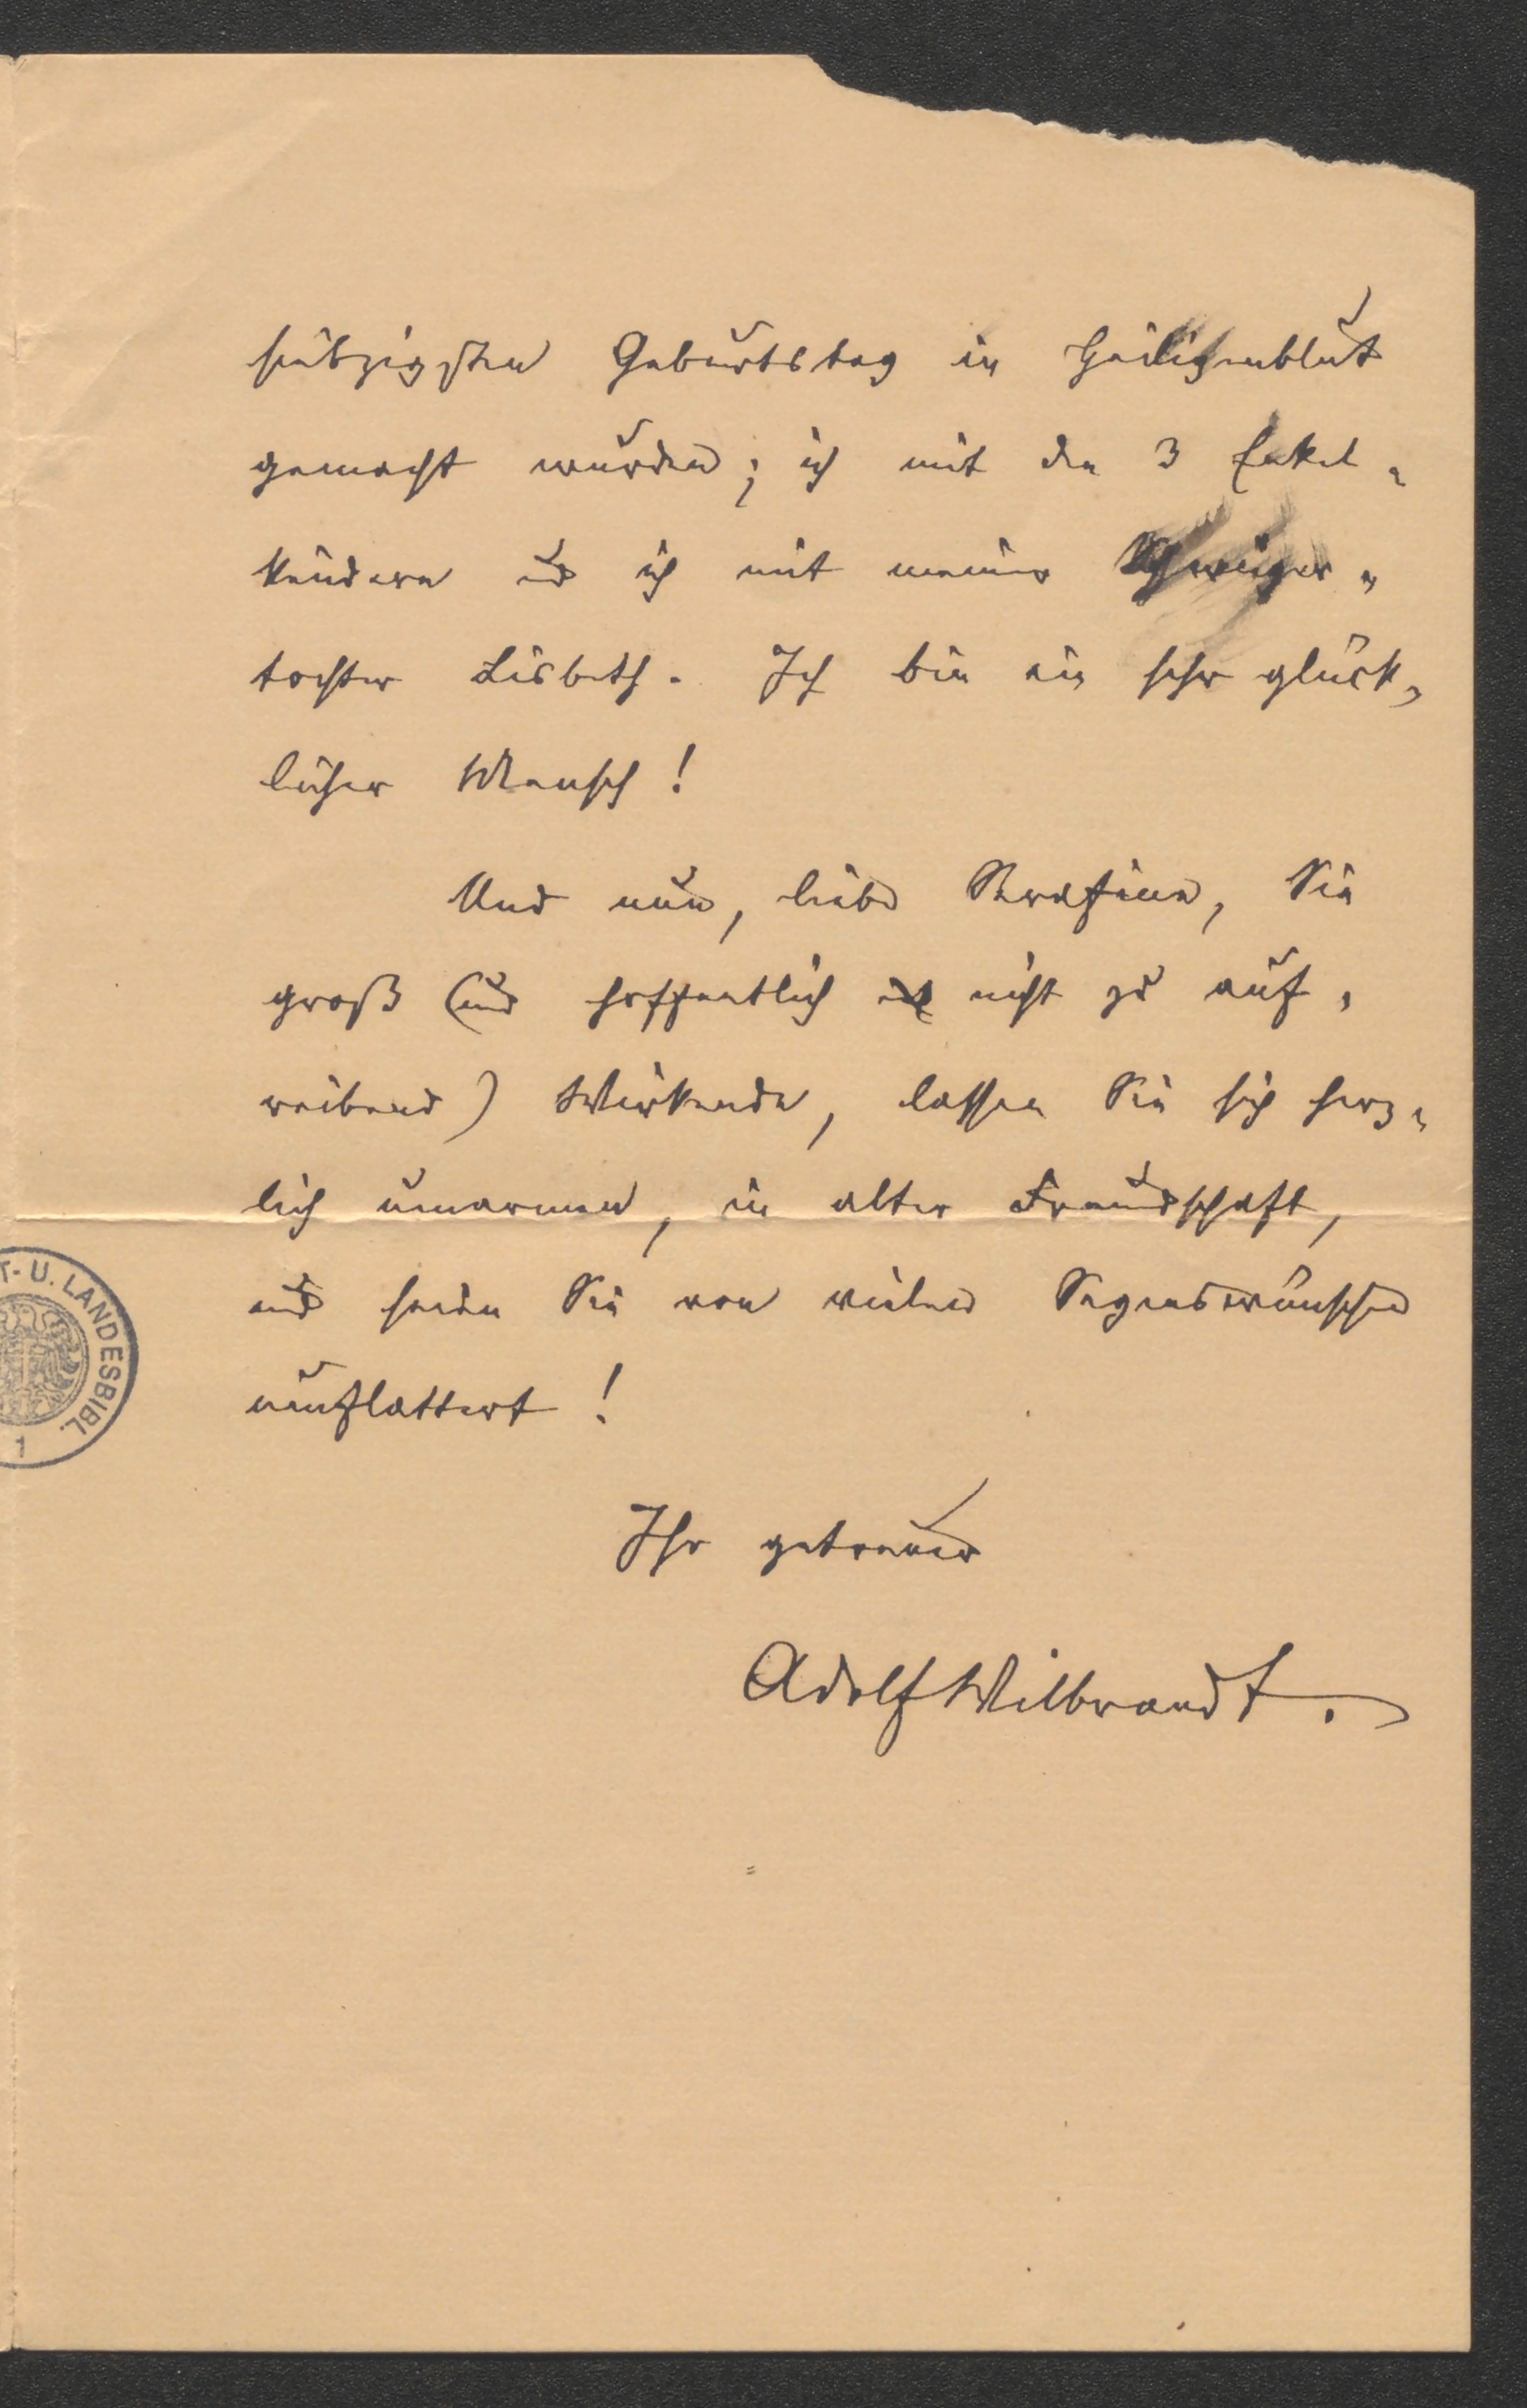 siebzigsten Geburtstag in Heiligenblut
gemacht wurden; ich mit den 3 Enkel-
kindern und ich mit meiner Schwieger-
tochter Lisbeth. Ich bin ein sehr glück-
licher Mensch!
Und nun, liebe Serafine, Sie
groß (und hoffentlich nicht zu auf-
reibend) Wirkende, lassen Sie sich herz-
lich umarmen, in alter Freundschaft,
und seien Sie von vielen Segenswünschen
umflattert!
Ihr getreuer
Adolf Wilbrandt.
T- U. LANDESBIBL.
1